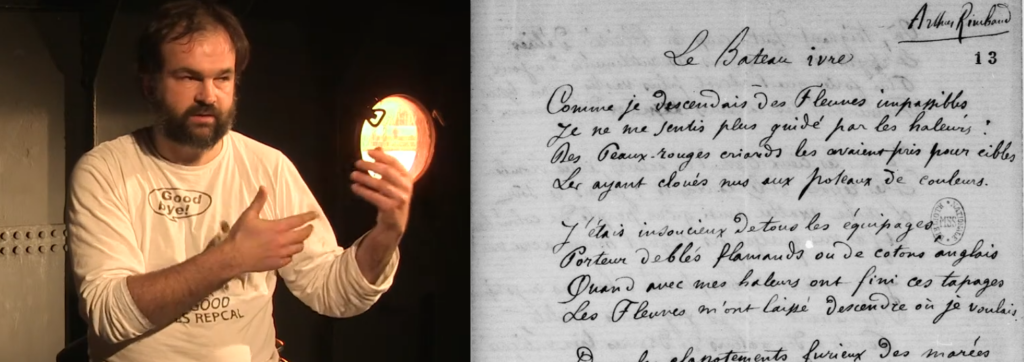 Good
bye!
GOOD
S REPCAL
Arthur Rimbaud
13
Le Bateau ivre
Comme je descendais des Fleuves impassibles
Je ne me sentis plus guidé par les haleurs :
Des Peaux-rouges criards les avaient pris pour cibles
Les ayant cloués nus aux poteaux de couleurs.
J'étais insoucieux de tous les équipages,
Porteur de blés flamands ou de cotons anglais
Quand avec mes haleurs ont fini ces tapages
Les Fleuves m'ont laissé descendre où je voulais.
clapotements furieux des marées